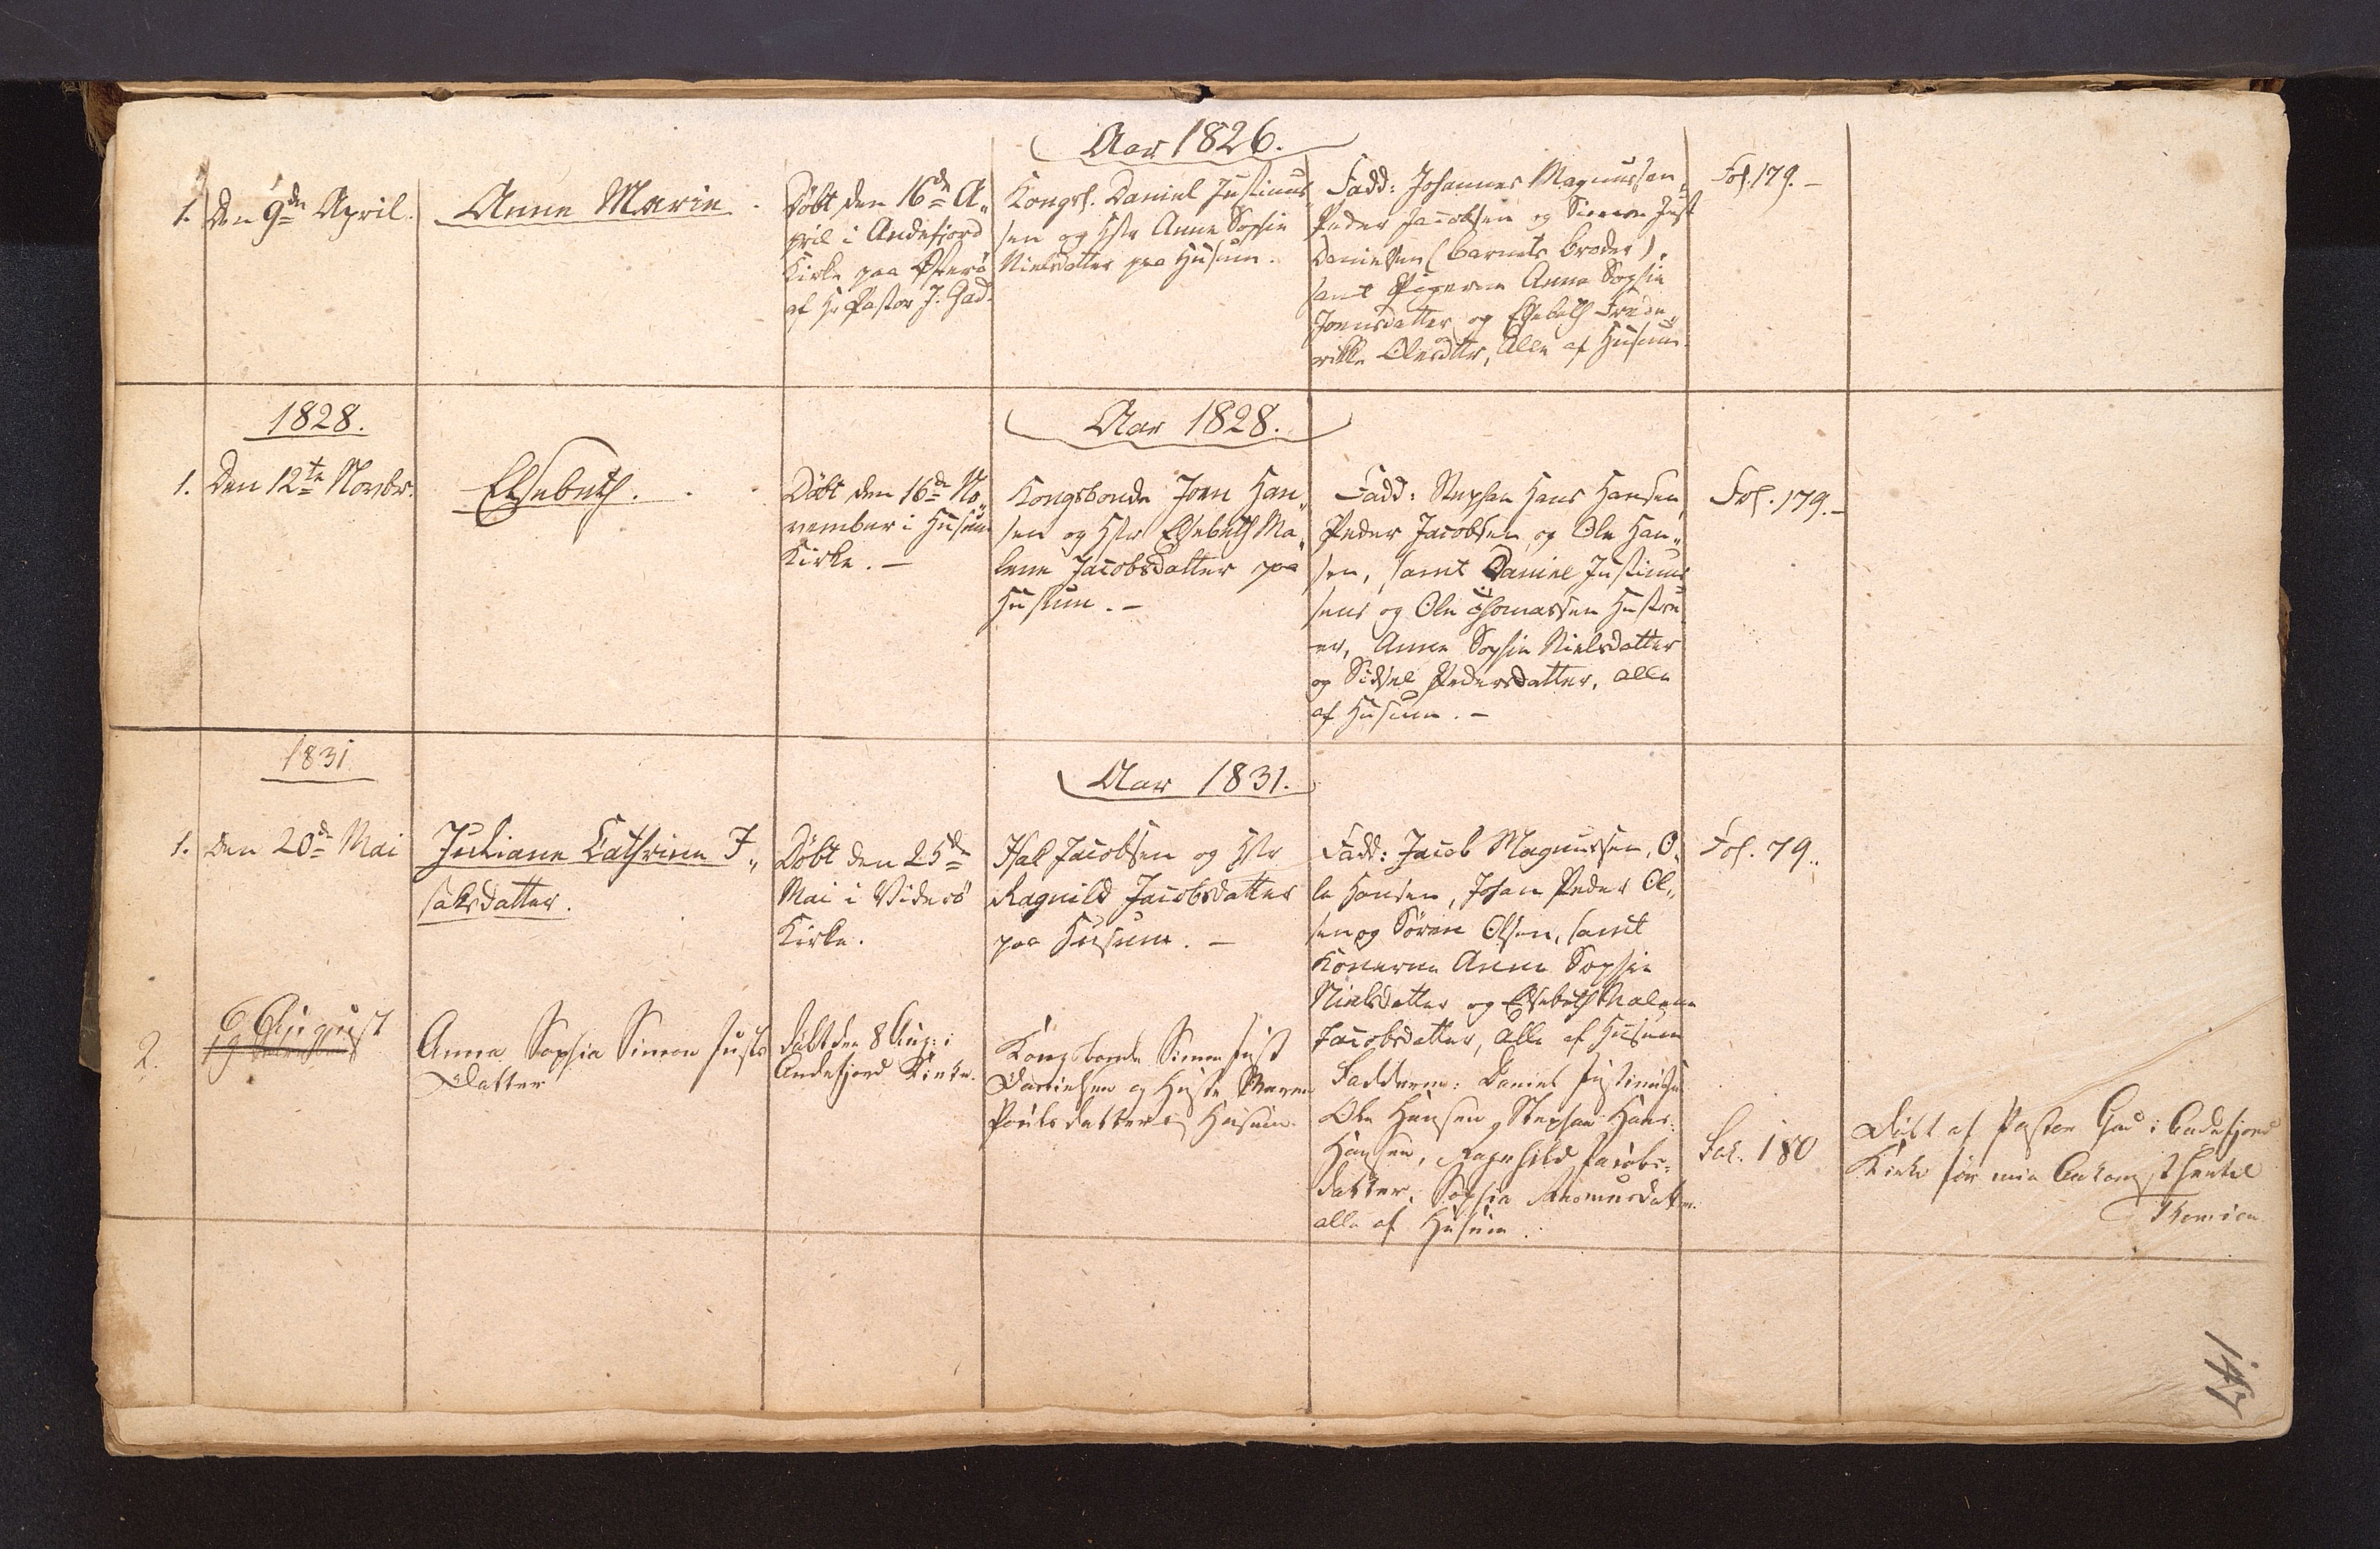 Aar 1826.
1. Den 9de April.
Anne Marie
Döbt den 16de A„
pril i Andefjord
Kirke paa Österö
af Hr Pastor J. Gad.
Kongsb. Daniel Justinus„
sen og Hstr Anne Sophie
Nielsdatter paa Husum.
Fadd: Johannes Magnussen,
Peder Jacobsen og Simon Just
Danielsen (Barnets Broder),
samt Pigerne Anna Sophie
Joensdatter og Elsebeth Frede„
rikke Olesdttr, Alle af Husum.
Fol. 179. –
1828.
Aar 1828.
1. Den 12te Novbr.
Elsebeth.
Döbt den 16de No„
vember i Husum
Kirke. –
Kongsbonde Joen Han„
sen og Hstr Elsebeth Ma„
lene Jacobsdatter paa
Husum. –
Fadd: Stephan Hans Hansen,
Peder Jacobsen og Ole Han„
sen, samt Daniel Justinus
sens og Ole Thomassen Hustru
er, Anne Sophie Nielsdatter
og Sidsel Pedersdatter, alle
af Husum. –
Fol. 179. –
1831
Aar 1831.
1. Den 20de Mai
Juliane Cathrine I„
saksdatter.
Döbt den 25de
Mai i Viderö
Kirke.
Isak Jacobsen og Hstr
Ragnild Jacobsdatter
paa Husum. –
Fadd: Jacob Magnussen, O„
le Hansen, Johan Peder Ol„
sen og Sören Olsen, samt
Konerne Anne Sophie
Nielsdatter og Elsebeth Malene
Jacobsdatter, alle af Husum
Fol. 79.
2.
6 August
19
Anna Sophia Simon Justs
Datter
Döbt den 8 Aug: i
Andefjord Kirke.
Kongsbonde Simon Just
Danielsen og Hustr Maren
Poulsdatter af Husum.
Fadderne: Daniel Justinussen
Ole Hansen, Stephan Hans:
Hansen, Ragnhild Jacobs=
datter, Sophia Rasmusdatter
alle af Husum.
Fol. 180
Döbt af Pastor Gad i Andefjord
Kirke før min Ankomst hertil
147